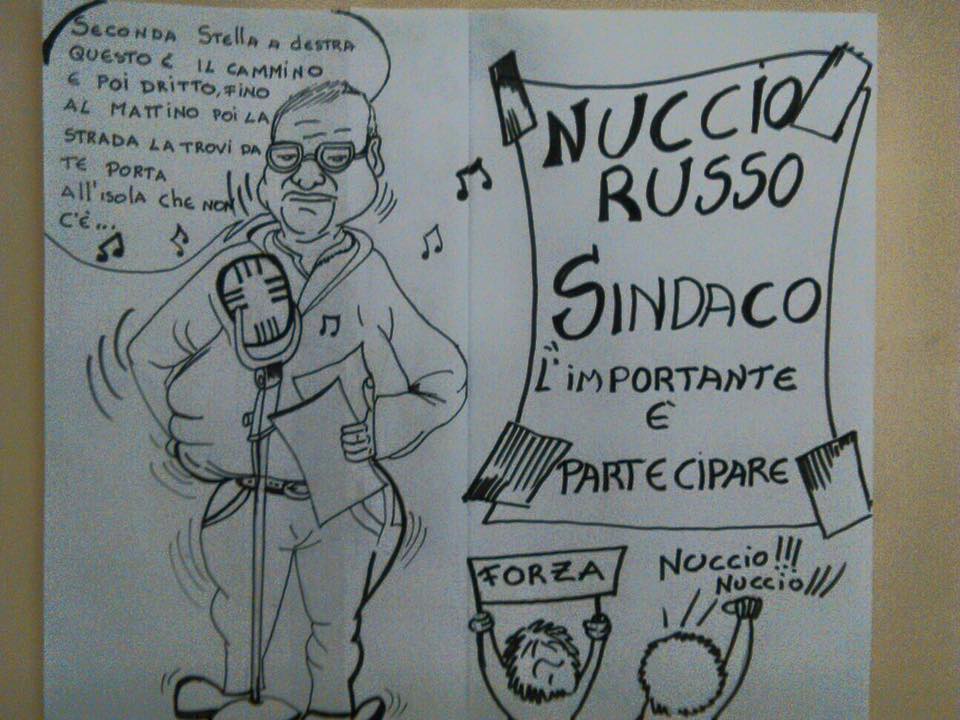 SECONDA STELLA A dESTRA
QUESTO È IL CAMMINO
E POI DRITTO, FINO
AL MATTINO POI LA
STRADA LA TROVI DA
TE PORTA
All'ISOLA CHE NON
C'È...
NUCCIO
RUSSO
SINDACO
L'IMPORTANTE
È
PARTECIPARE
FORZA
NUCCIO!!!
NUCCIO!!!